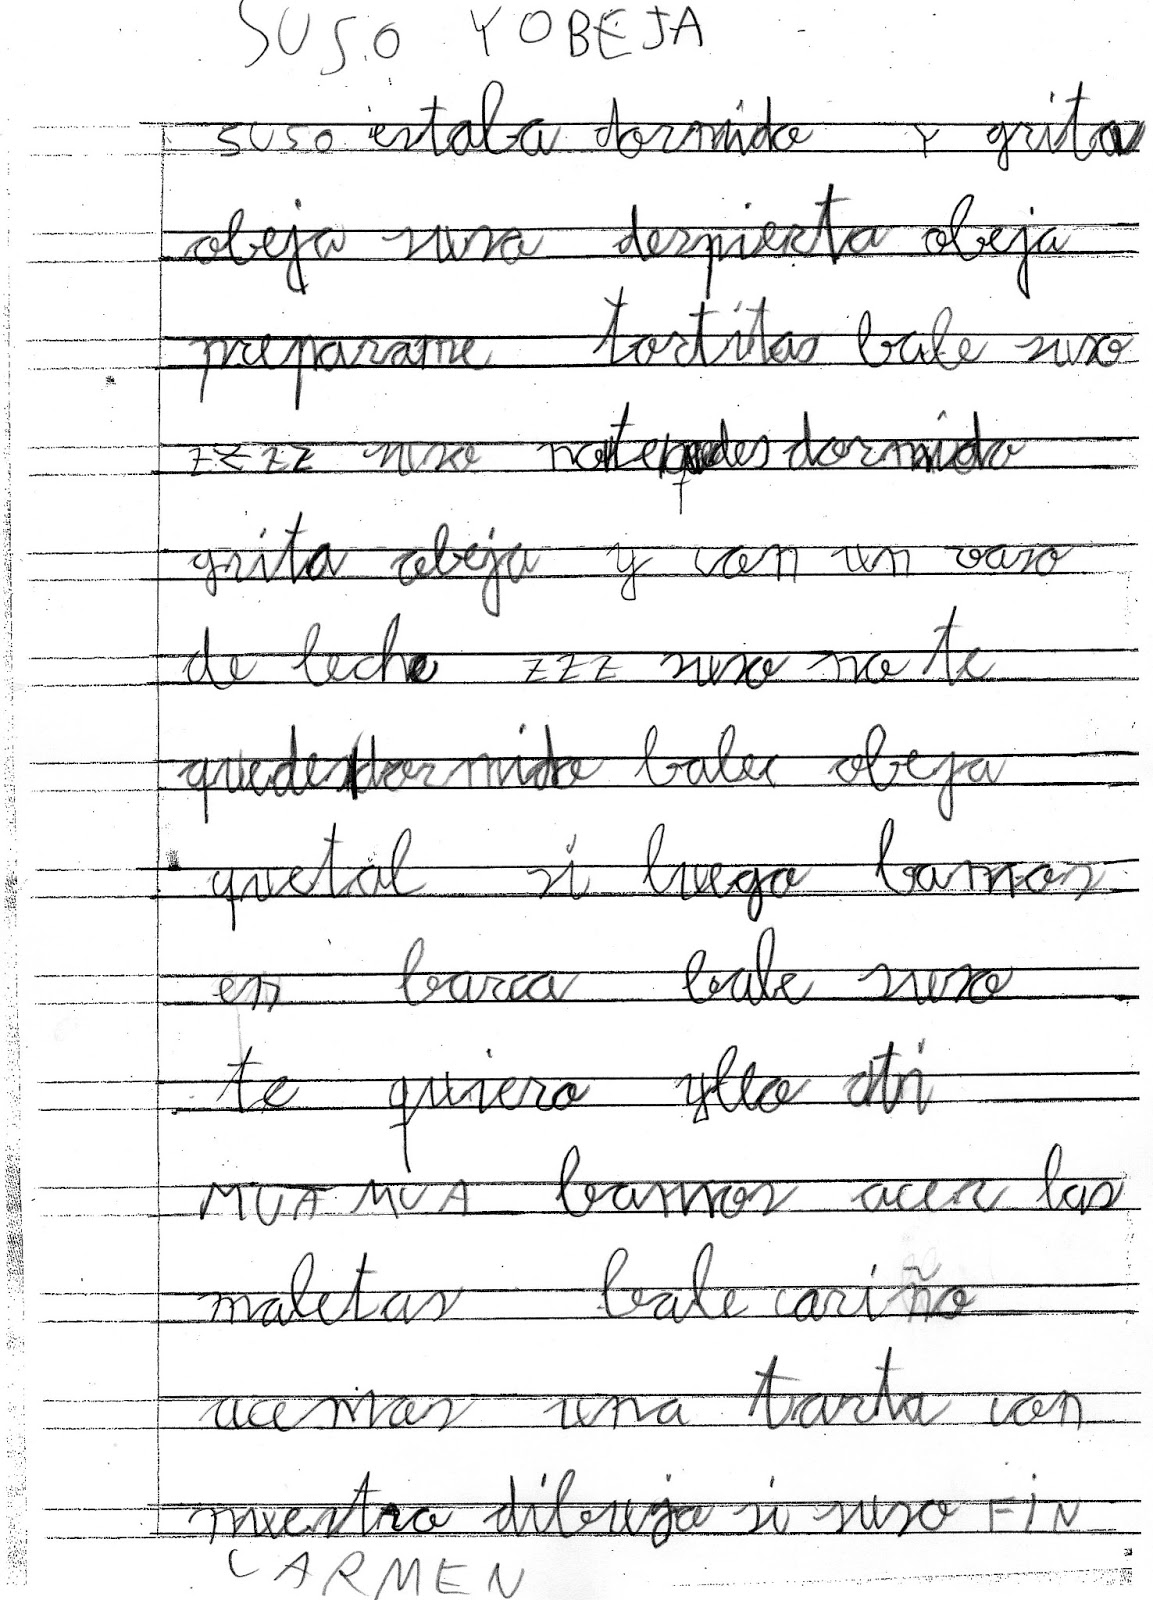 SUSO YOBEJA
SUSO estaba dormido Y grita
obeja suso despierta obeja
preparame tortitas bale suso
zzzz suso notequedes dormido
grita obeja y con un vaso
de leche zzz suso no te
quedes dormido bale obeja
quetal si luego bamos
en barca bale suso
te quiero yllo ati
MUA MUA bamos acer las
maletas bale cariño
acemos una tarta con
nuestro dibujo si suso FIN
CARMEN